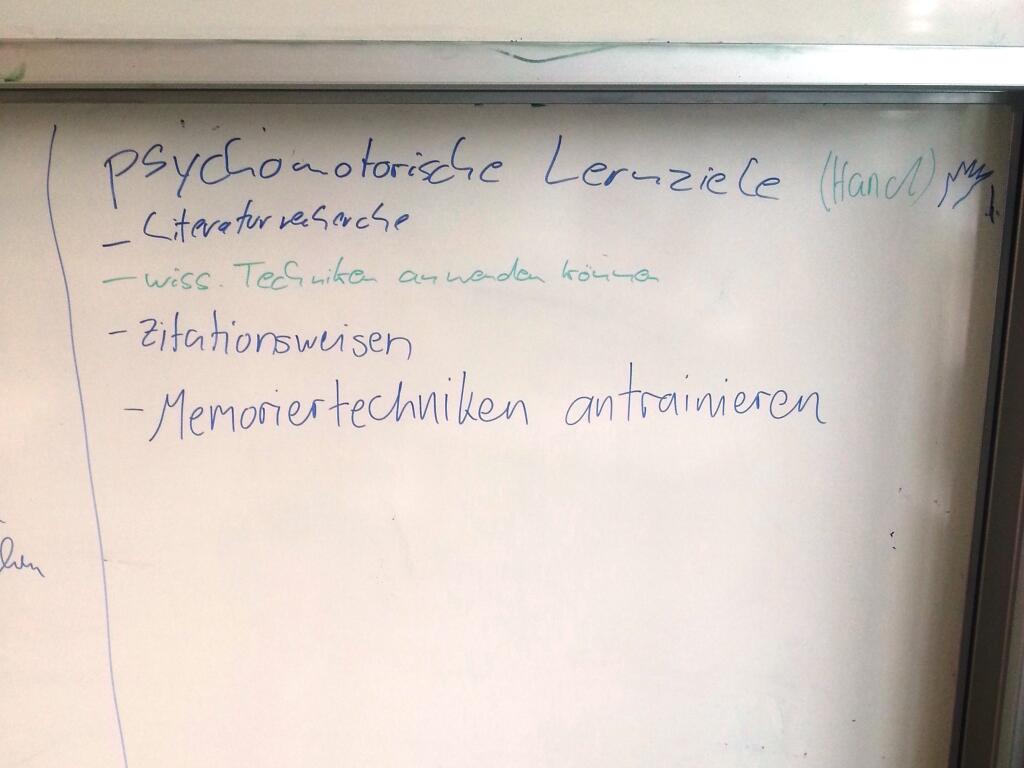 psychomotorische Lernziele (Hand)
- Literaturrecherche
- wiss. Techniken anwenden können
- Zitationsweisen
- Memoriertechniken antrainieren